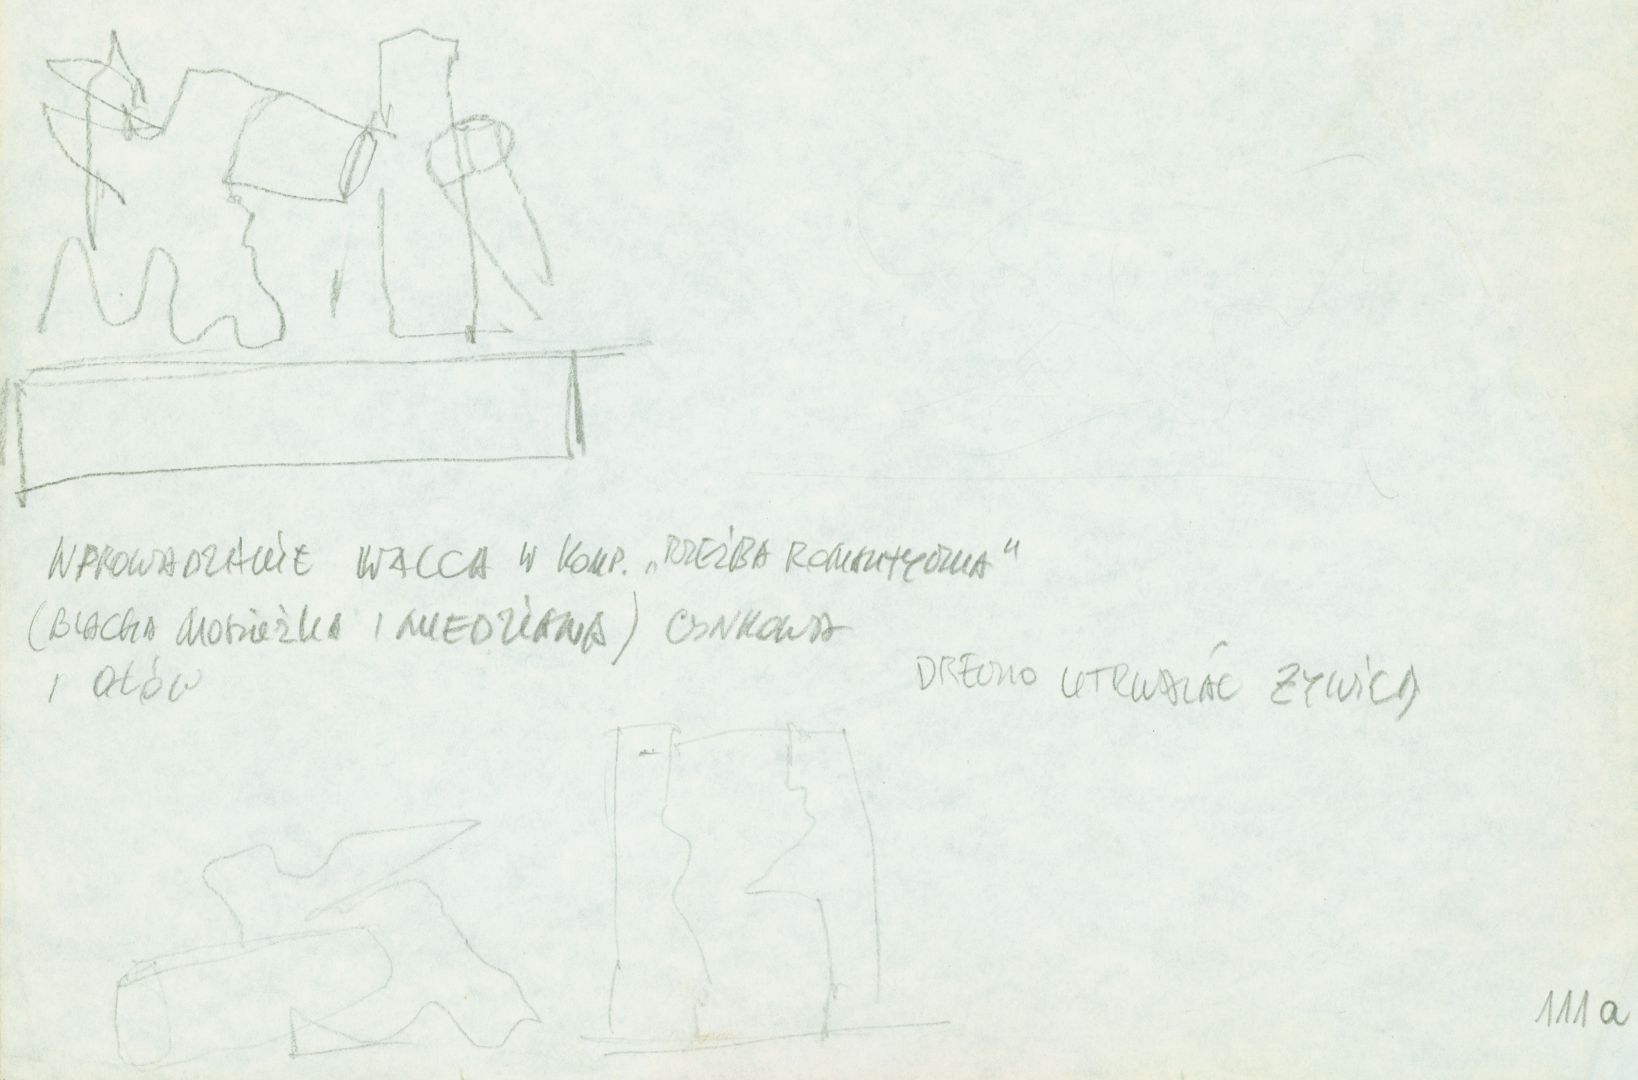 WPROWADZANIE WALCA W KOMP. „RZEŹBA ROMANTYCZNA"
(BLACHA MOSIĘŻNA I MIEDZIANA) CYNKOWA
I OŁÓW
DREWNO UTRWALAĆ ŻYWICĄ
111a